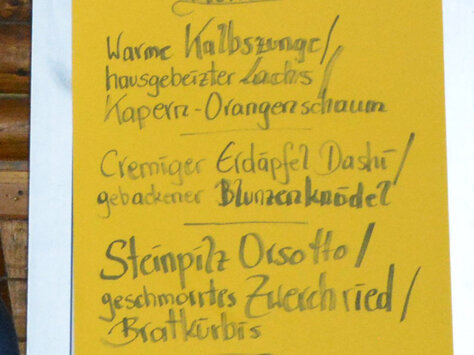 Warme Kalbszunge/
hausgebeizter Lachs/
Kapern-Orangenschaum
Cremiger Erdäpfel Dashi/
gebackener Blunzenknödel
Steinpilz Orsotto/
geschmortes Zwerchried/
Bratkürbis